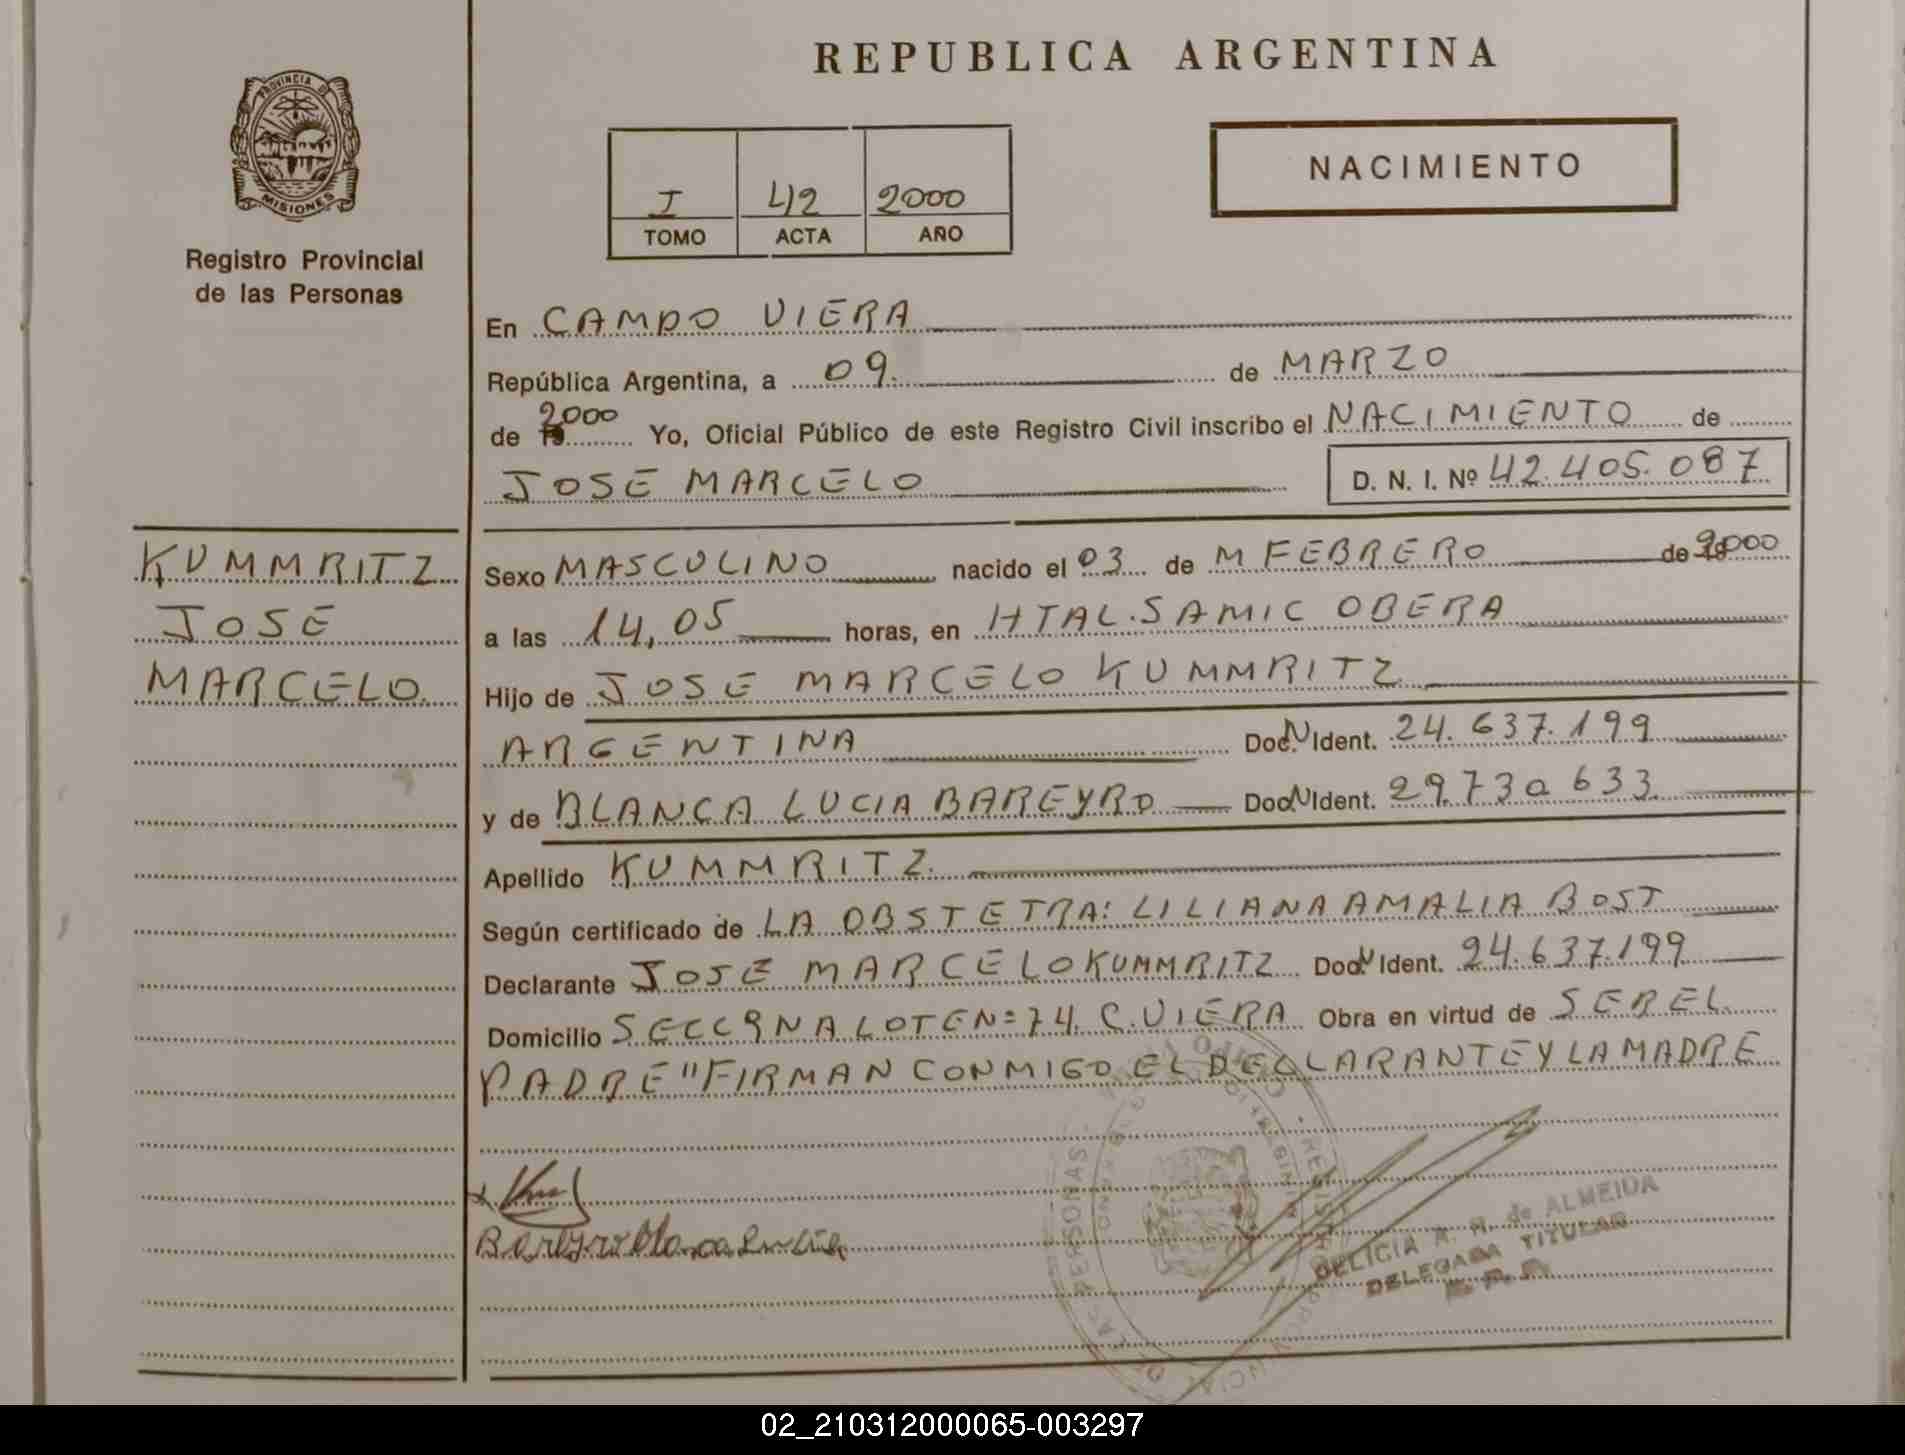 REPUBLICA ARGENTINA
PROVINCIA DE
MISIONES
Registro Provincial
de las Personas
I 42 2000
TOMO ACTA AÑO
NACIMIENTO
En CAMPO VIERA
República Argentina, a 09. de MARZO
de 2000 Yo, Oficial Público de este Registro Civil inscribo el NACIMIENTO de
JOSE MARCELO D. N. I. Nº 42.405.087
KUMMRITZ
JOSE
MARCELO.
Sexo MASCULINO nacido el 03 de M FEBRERO de 2000
a las 14,05 horas, en HTAL. SAMIC OBERA
Hijo de JOSE MARCELO KUMMRITZ
ARGENTINA Doc.N Ident. 24.637.199
y de BLANCA LUCIA BAREYRO Doc.N Ident. 29.730 633
Apellido KUMMRITZ.
Según certificado de LA OBSTETRA: LILIANA AMALIA BOST
Declarante JOSE MARCELO KUMMRITZ Doc.N Ident. 24.637.199
Domicilio SECC 9NA LOTE Nº 74. C. VIERA Obra en virtud de SER EL
PADRE" FIRMAN CONMIGO EL DECLARANTE Y LA MADRE
Bareyro Blanca Lucia
DELICIA A. H. de ALMEIDA
DELEGADA TITULAR
02_210312000065-003297